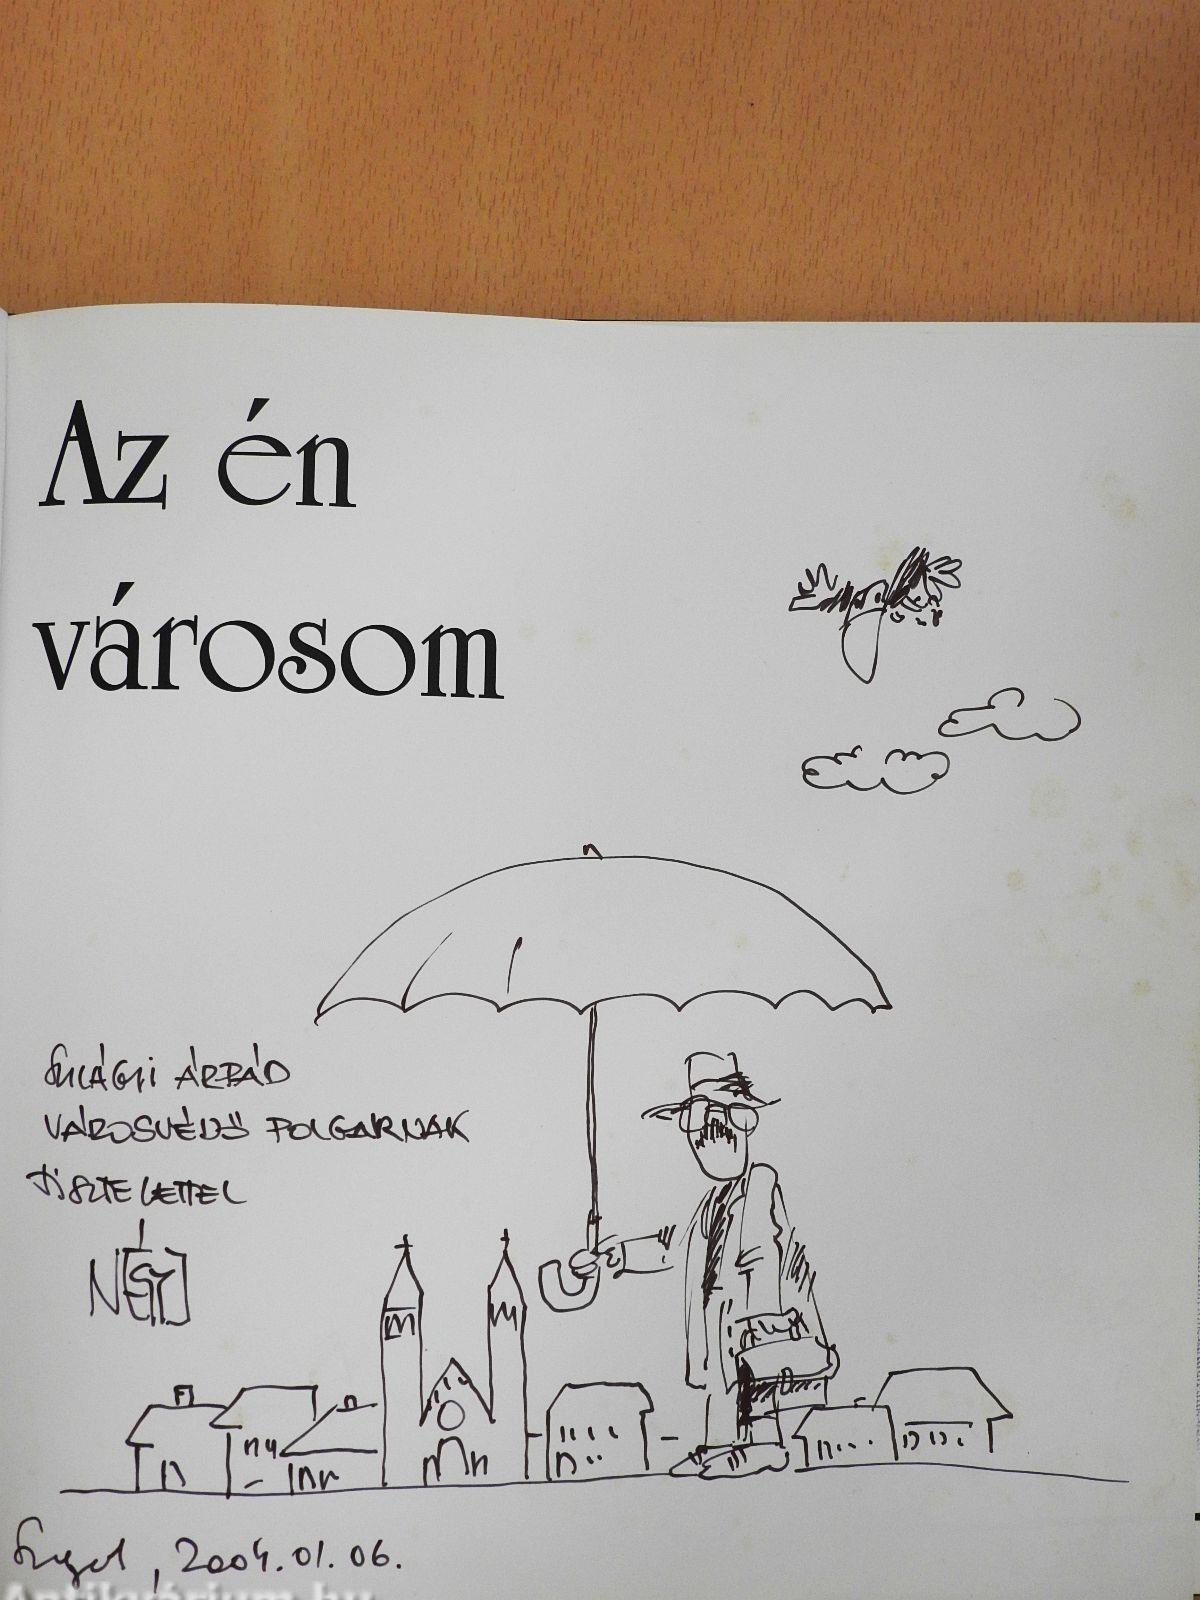 Az én
városom
SZILÁGYI ÁRPÁD
VÁROSVÉDŐ POLGÁRNAK
TISZTELETTEL
Szeged, 2004.01.06.
Antikvárium.hu